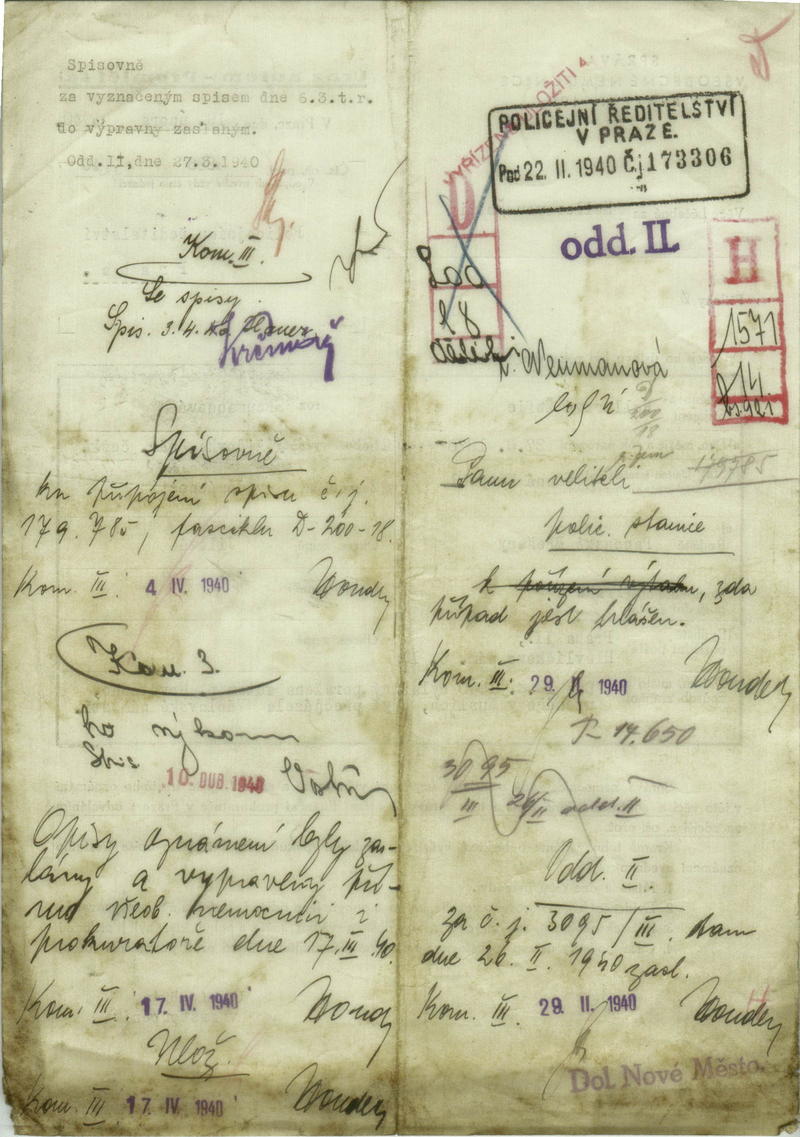 Spisovně
za vyznačeným spisem dne 6.3.t.r.
do výpravny zaslaným.
Odd.II,dne 27.3.1940
Kom. III.
Se spisy
Spis. 3. 4.
Spisovně
ku připojení spisu č. j.
179.785, fasciklu D-200-18.
Kom. III. 4 IV. 1940
Kom. 3.
10 DUB. 1940
Opisy oznámení byly zas-
lány a vypraveny pří-
mo všeob. nemocnici i
prokuratoře dne 17.III.40.
Kom. III. 17. IV. 1940
Vlož.
Kom. III 17 IV. 1940
VYŘÍZENO ULOŽITI
POLICEJNÍ ŘEDITELSTVÍ
V PRAZE.
Pod 22. II. 1940 Čj 173306
odd. II.
D
200
18
H
1571
14
Neumanová
175785
Panu veliteli
polic. stanice
k pořízení výtahu, zda
případ jest hlášen.
Kom. III. 29. II 1940
P 14.650
3095
III
26/II odd. II
Odd. II.
za č. j. 3095/III. tam
dne 26. II. 1940 zasl.
Kom. III. 29. II. 1940
Dol. Nové Město.